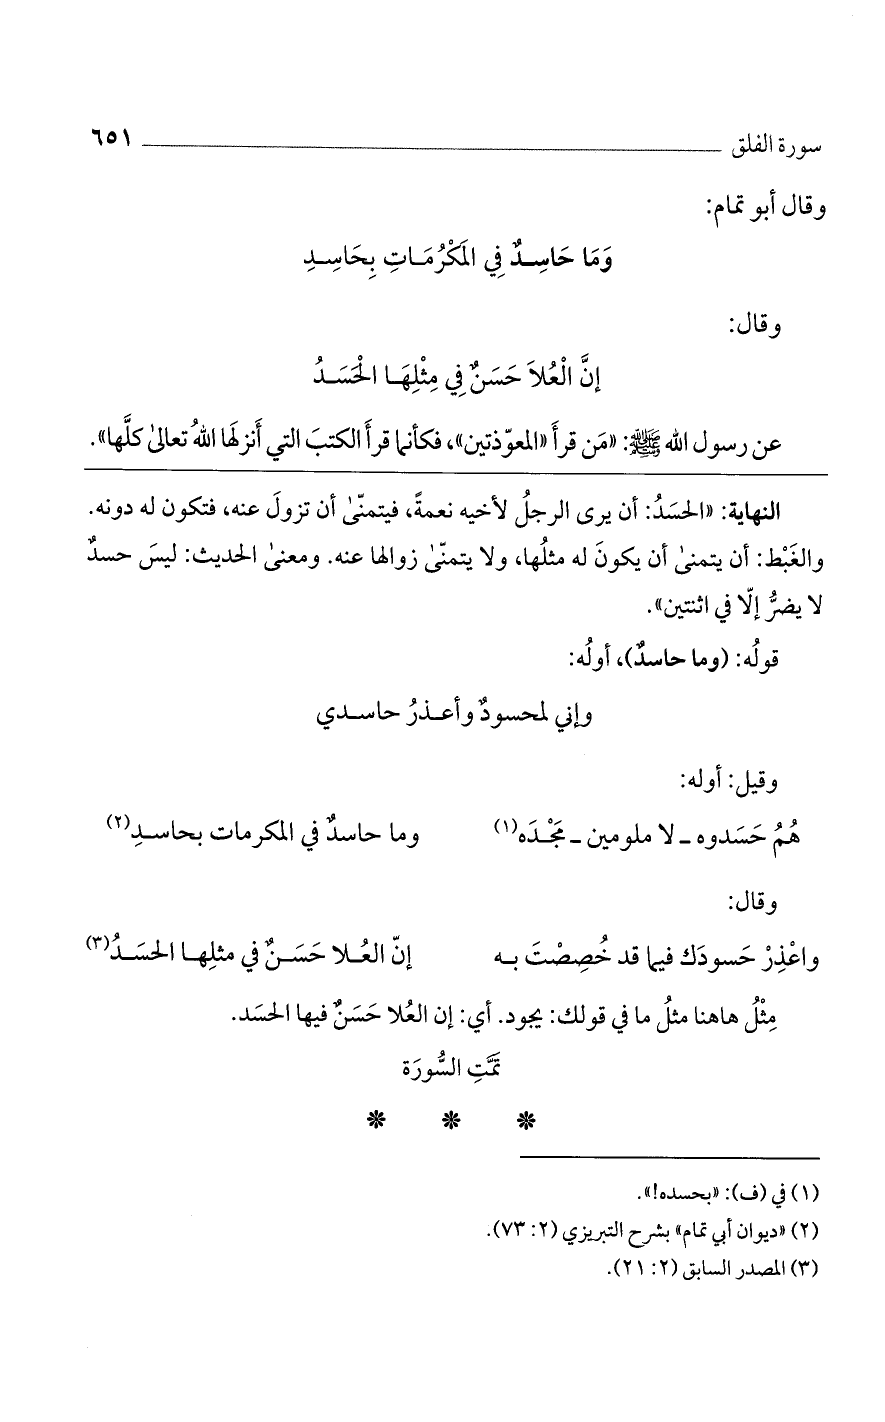 سورة الفلق ٦٥١
وقال أبو تمام:
وَمَا حَاسِدٌ فِي المَكْرُمَاتِ بِحَاسِدِ
وقال:
إنَّ الْعُلاَ حَسَنٌ فِي مِثْلِهَا الْحَسَدُ
عن رسول الله ﷺ: «مَن قرأَ «المعوّذتين»، فكأنما قرأَ الكتبَ التي أَنزلَها اللهُ تعالىٰ كلَّها».
النهاية: «الحسَدُ: أن يرى الرجلُ لأخيه نعمةً، فيتمنّىٰ أن تزولَ عنه، فتكون له دونه.
والغَبْط: أن يتمنىٰ أن يكونَ له مثلُها، ولا يتمنّىٰ زوالها عنه. ومعنىٰ الحديث: ليسَ حسدٌ
لا يضرُّ إلّا في اثنتين».
قولُه: (وما حاسدٌ)، أولُه:
وإني لمحسودٌ وأعذرُ حاسدي
وقيل: أوله:
هُمُ حَسَدوه ـ لا ملومين ـ مَجْدَه(١) وما حاسدٌ في المكرمات بحاسدِ(٢)
وقال:
واعْذِرْ حَسودَك فيما قد خُصِصْتَ به إنّ العُلا حَسَنٌ في مثلِها الحسَدُ(٣)
مِثْلُ هاهنا مثلُ ما في قولك: يجود. أي: إن العُلا حَسَنٌ فيها الحسَد.
تَمَّتِ السُّورَة
* * *
(١) في (ف): «بحسده!».
(٢) «ديوان أبي تمام» بشرح التبريزي (٢: ٧٣).
(٣) المصدر السابق (٢: ٢١).